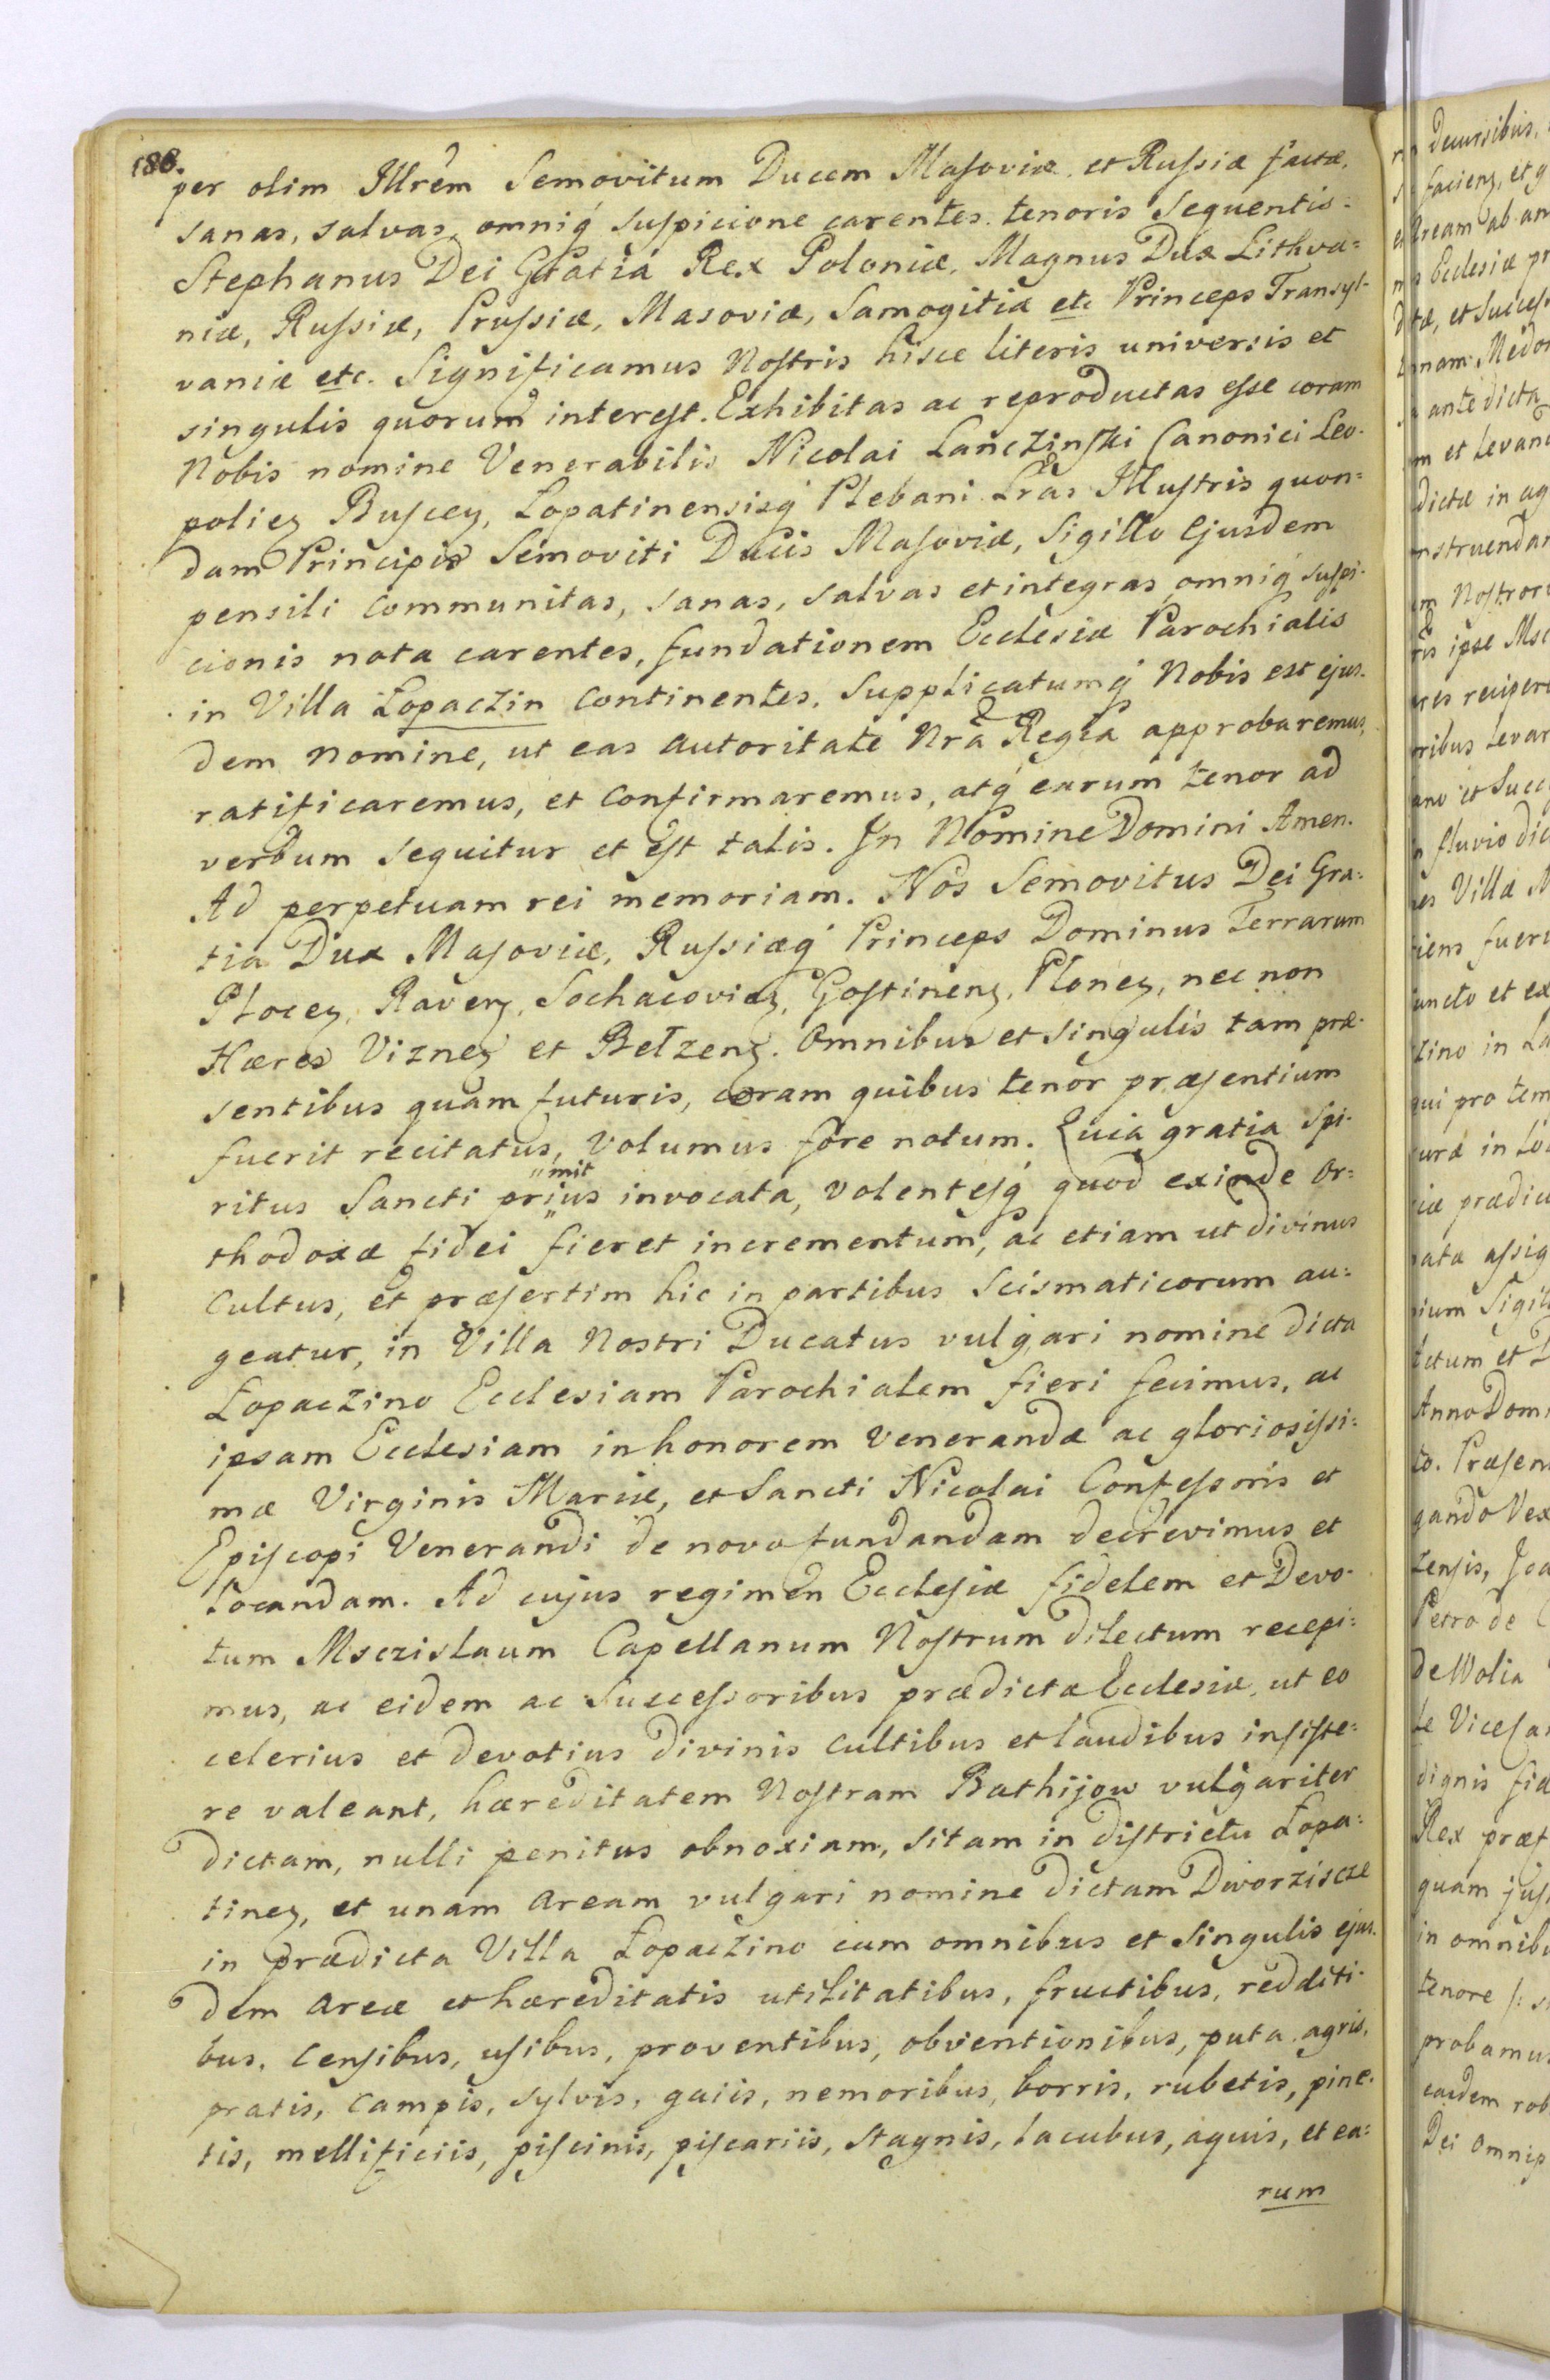 188.
per olim Illrẽm Semovitum Ducem Masoviæ, et Russiæ factæ,
sanas, salvas, omniq́ suspicione carentes. tenoris Sequentis:
Stephanus Dei Gratia Rex Poloniæ, Magnus Dux Lithva=
niæ, Russiæ, Prussiæ, Masoviæ, Samogitiæ etc Princeps Transyl-
vaniæ etc. Significamus Nostris hisce literis universis et
singulis quorum interest. Exhibitas ac reproductas esse coram
Nobis nomine Venerabilis Nicolai Lanczinski Canonici Leo-
polieȝ Busceȝ, Lopatinensisq́ Plebani Lrãs Illustris quon=
dam Principis Semoviti Ducis Masoviæ, Sigillo Ejusdem
pensili communitas, sanas, salvas et integras omniq́ suspi-
cionis nota carentes, fundationem Ecclesiæ Parochialis
in Villa Lopaczin continentes, Supplicatumq́ Nobis est ejus-
dem nomine, ut eas autoritate Nrã Regia approbaremus,
ratificaremus, et confirmaremus, atq́ earum tenor ad
verbum sequitur et est talis. In Nomine Domini Amen.
Ad perpetuam rei memoriam. Nos Semovitus Dei Gra=
tia Dux Masoviæ, Russiæq́ Princeps Dominus Terrarum
Ploceȝ, Raveȝ, Sochacovieȝ, Gostineȝ, Ploneȝ, nec non
Hæres Vizneȝ et Belzenȝ. Omnibus et singulis tam præ-
sentibus quam futuris, coram quibus tenor præsentium
fuerit recitatus, volumus fore notum. Quia gratia Spi-
"mit
ritus Sancti prius invocata, volentesq́ quod exinde or=
thodoxæ fidei fieret incrementum, ac etiam ut divinus
cultus, et præsertim hic in partibus Scismaticorum au=
geatur, in Villa Nostri Ducatus vulgari nomine dicta
Lopaczino Ecclesiam Parochialem fieri fecimus, ac
ipsam Ecclesiam in honorem venerandæ ac gloriosissi=
mæ Virginis Mariæ, et Sancti Nicolai Confessoris et
Episcopi Venerandi de novo fundandam decrevimus et
locandam. Ad cujus regimen Ecclesiæ fidelem et Devo-
tum Msczislaum Capellanum Nostrum dilectum recepi=
mus, ac eidem ac Successoribus prædictæ Ecclesiæ, ut eo
celerius et devotius divinis cultibus et laudibus insiste=
re valeant, hæreditatem Nostram Bathijow vulgariter
dictam, nulli penitus obnoxiam, sitam in districtu Lopa=
tineȝ, et unam aream vulgari nomine dictam Dworziscze
in prædicta Villa Lopaczino cum omnibus et singulis ejus-
dem areæ et hæreditatis utilitatibus, fructibus, redditi-
bus, censibus, usibus, proventibus, obventionibus, puta agris,
pratis, campis, sylvis, gaiis, nemoribus, borris, rubetis, pine-
tis, mellificiis, piscinis, piscariis, stagnis, lacubus, aquis, et ea=
rum
decursibus,
Ecclesiæ
ante dicta
et Levand
dictæ in ag
Nostror
ipse Msc
fluvio dic
Villæ
fueri
qui pro tem
Anno Dom
Præsen
Petro de
de Wolia
dignis fid
Rex præf
in omnib
tenore
probamus
Dei omnip